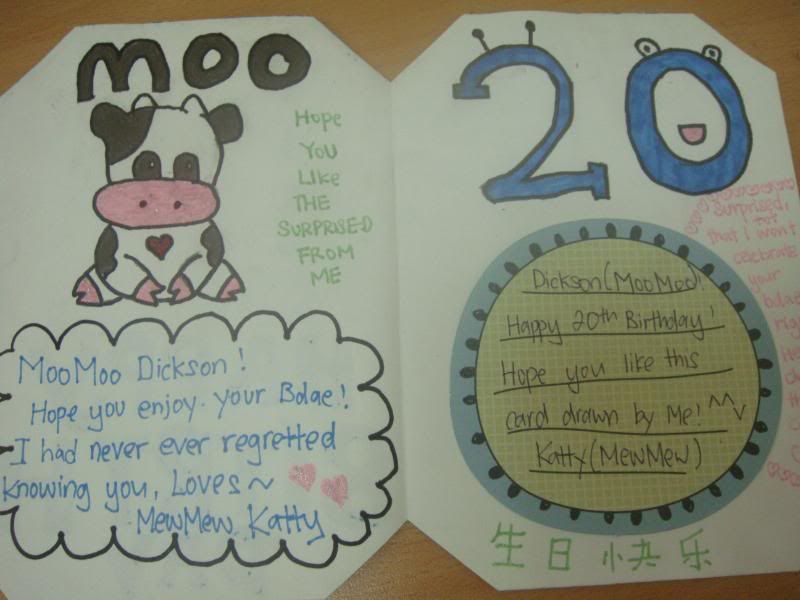 MOO
HOPE
YOU
LIKE
THE
SURPRISED
FROM
ME
MooMoo Dickson!
Hope you enjoy your Bdae!
I had never ever regretted
knowing you, Loves~
MewMew Katty
20
Dickson(MooMoo)!
Happy 20th Birthday!
Hope you like this
card drawn by Me! ^^v
Katty(MewMew)
Surprised,
I tot
that I won't
celebrate
your
bdae
生日快乐